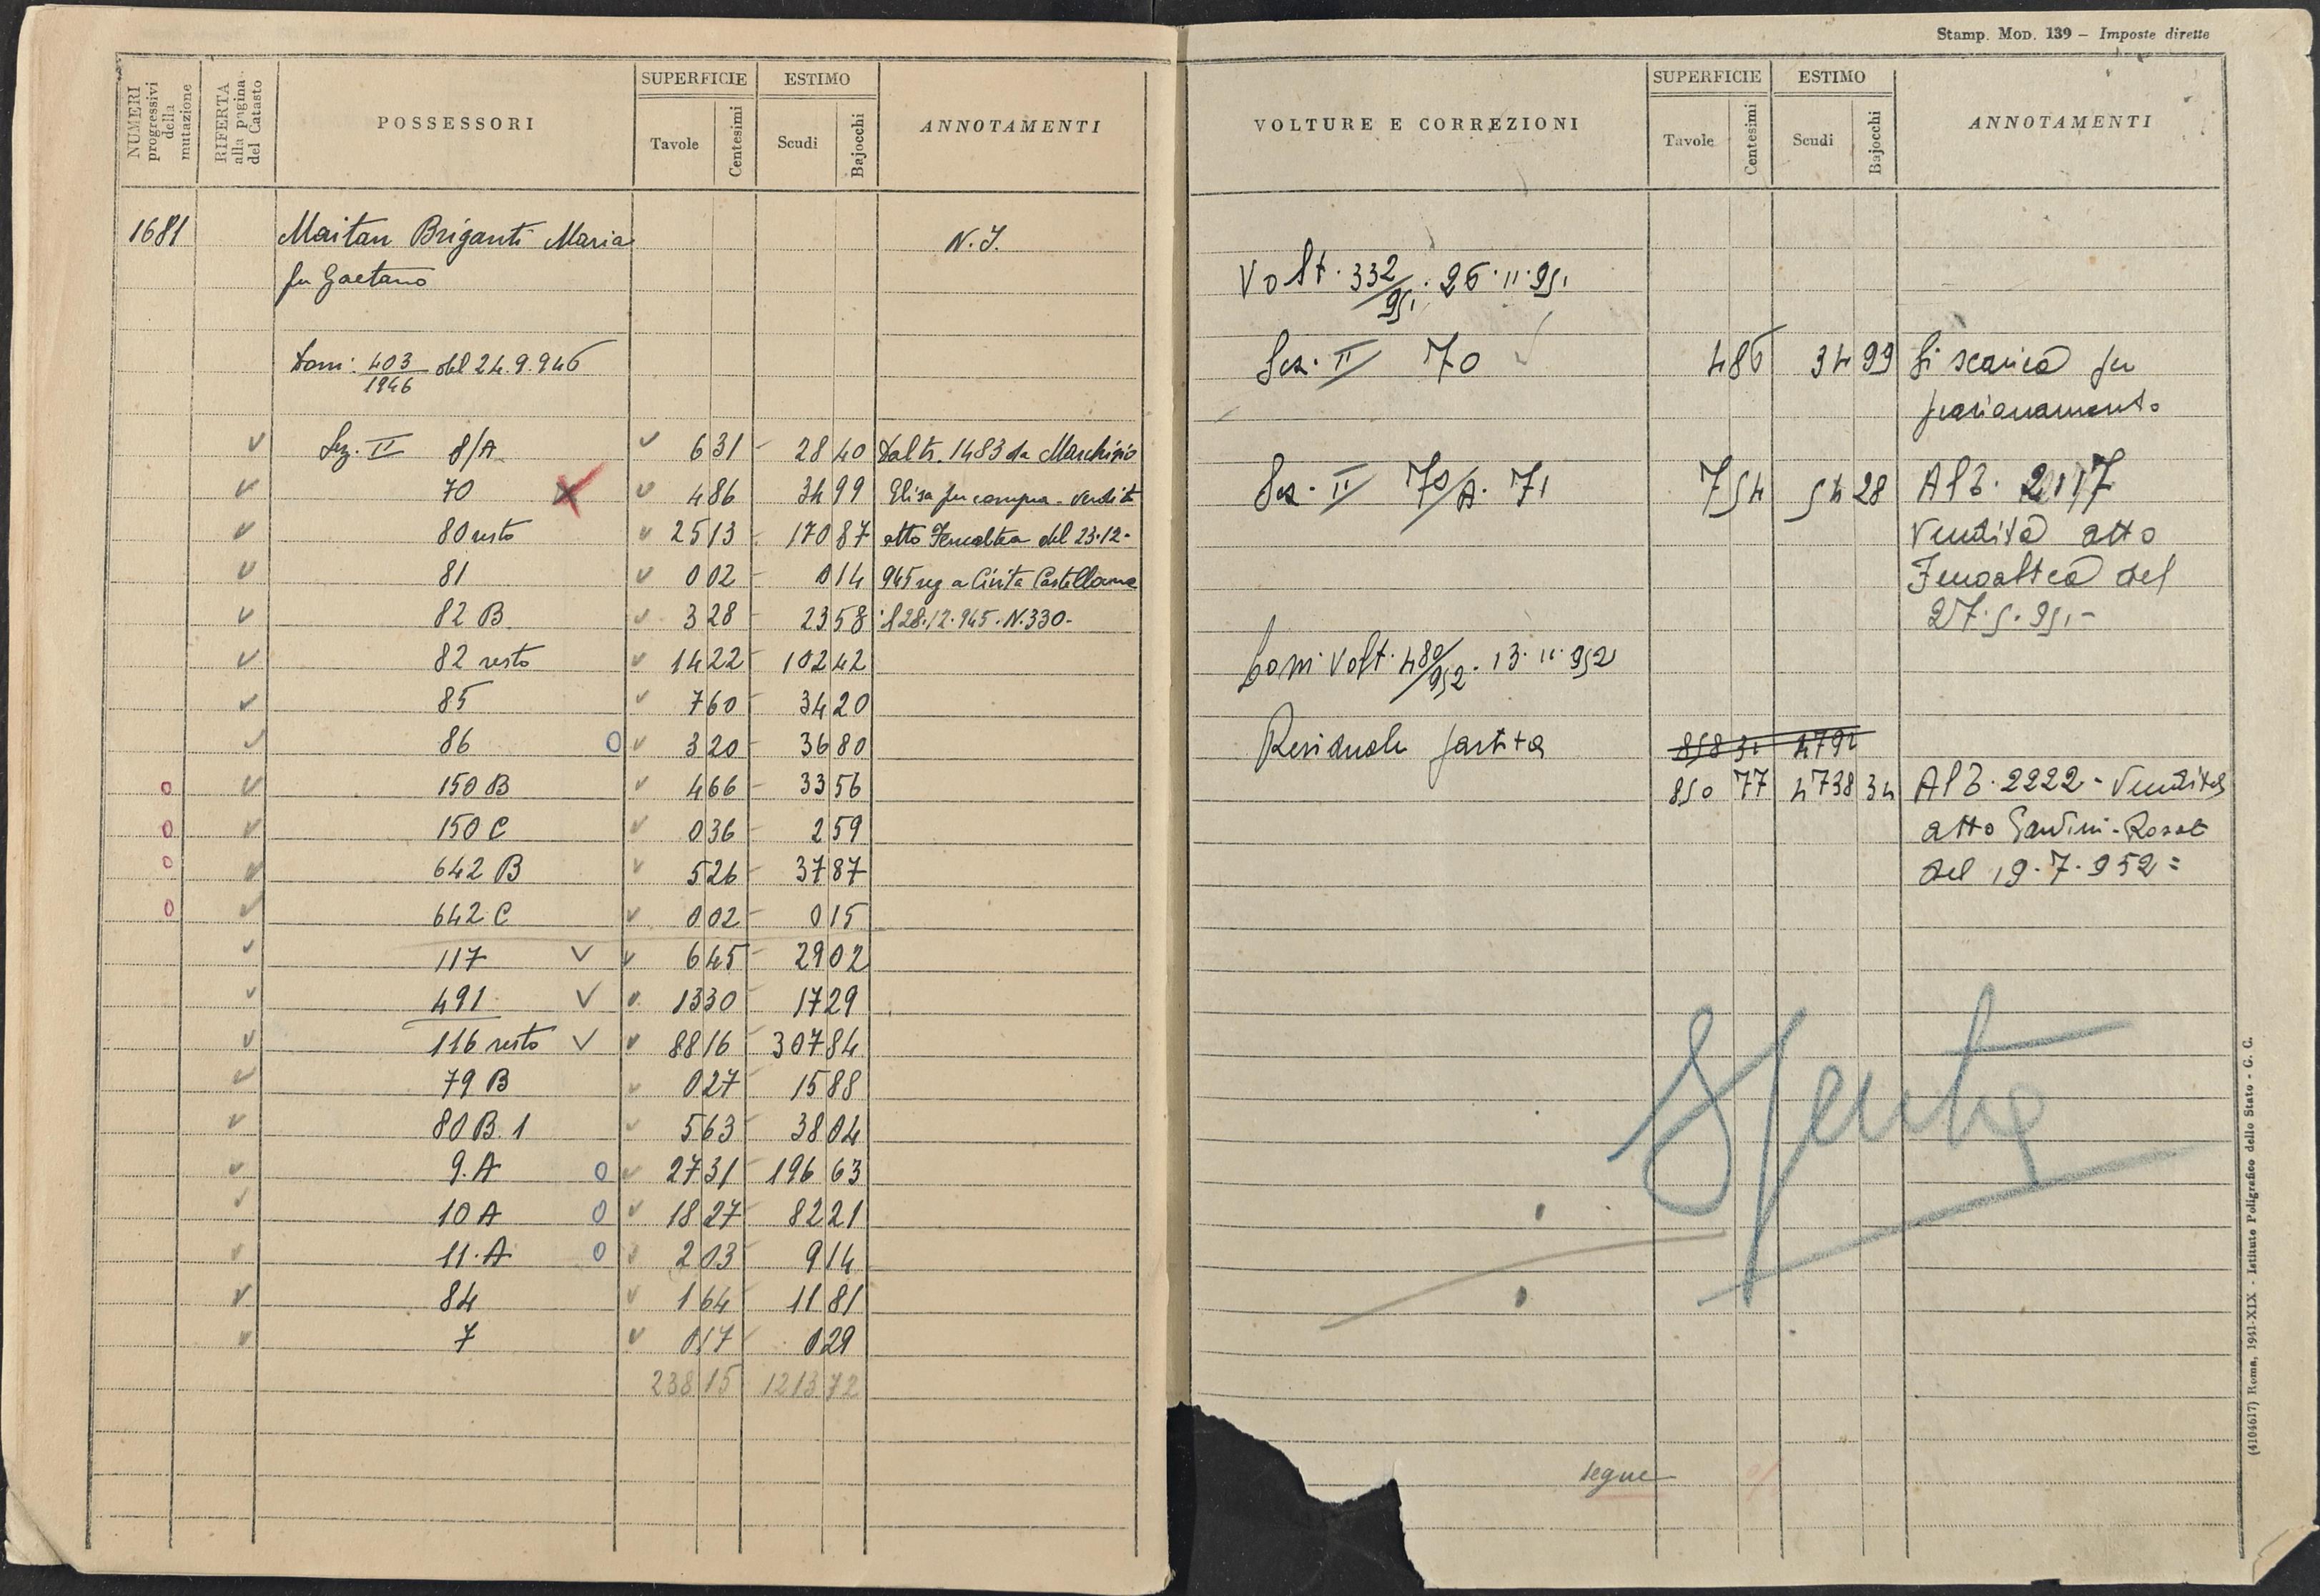 NUMERI progressivi della mutazione
RIFERTA alla pagina del Catasto
POSSESSORI
SUPERFICIE
Tavole
Centesimi
ESTIMO
Scudi
Bajocchi
ANNOTAMENTI
1681 Maitan Briganti Maria N.I.
fu Gaetano
403/1946 del 24.9.946
Sez. II 8/A 6 31 28 40 Dal tr. 1483 da Marchisio
70 4 86 34 99 Elisa per compra - Vendita
80 resto 25 13 170 87 atto Fenoaltea del 23.12.
81 0 02 0 14 945 reg a Civita Castellana
82 B 3 28 23 58 il 28.12.945. N. 330.
82 resto 14 22 102 42
85 7 60 34 20
86 3 20 36 80
150 B 4 66 33 56
150 C 0 36 2 59
642 B 5 26 37 87
642 C 0 02 0 15
117 6 45 29 02
491 13 30 17 29
116 resto 88 16 307 84
79 B 0 27 15 88
80 B. 1 5 63 38 04
9. A 27 31 196 63
10 A 18 27 82 21
11. A 2 03 9 14
84 1 64 11 81
7 0 17 0 29
238 15 1213 72
Stamp. Mod. 139 – Imposte dirette
VOLTURE E CORREZIONI
SUPERFICIE
Tavole
Centesimi
ESTIMO
Scudi
Bajocchi
ANNOTAMENTI
Volt. 332/951. 26.11.951
Sez. II 70 4 86 34 99 Si scarica per
frazionamento
Sez. II 70/A. 71 7 54 54 28 Al 3. 2117
Vendita atto
Fenoaltea del
27.5.951-
Volt. 480/952. 13.11.952
Residuale partita
850 77 4738 34 Al 3. 2222 - Vendita
atto
del 19.7.952=
Spenta
segue
(4104617) Roma, 1941-XIX - Istituto Poligrafico dello Stato - G. C.